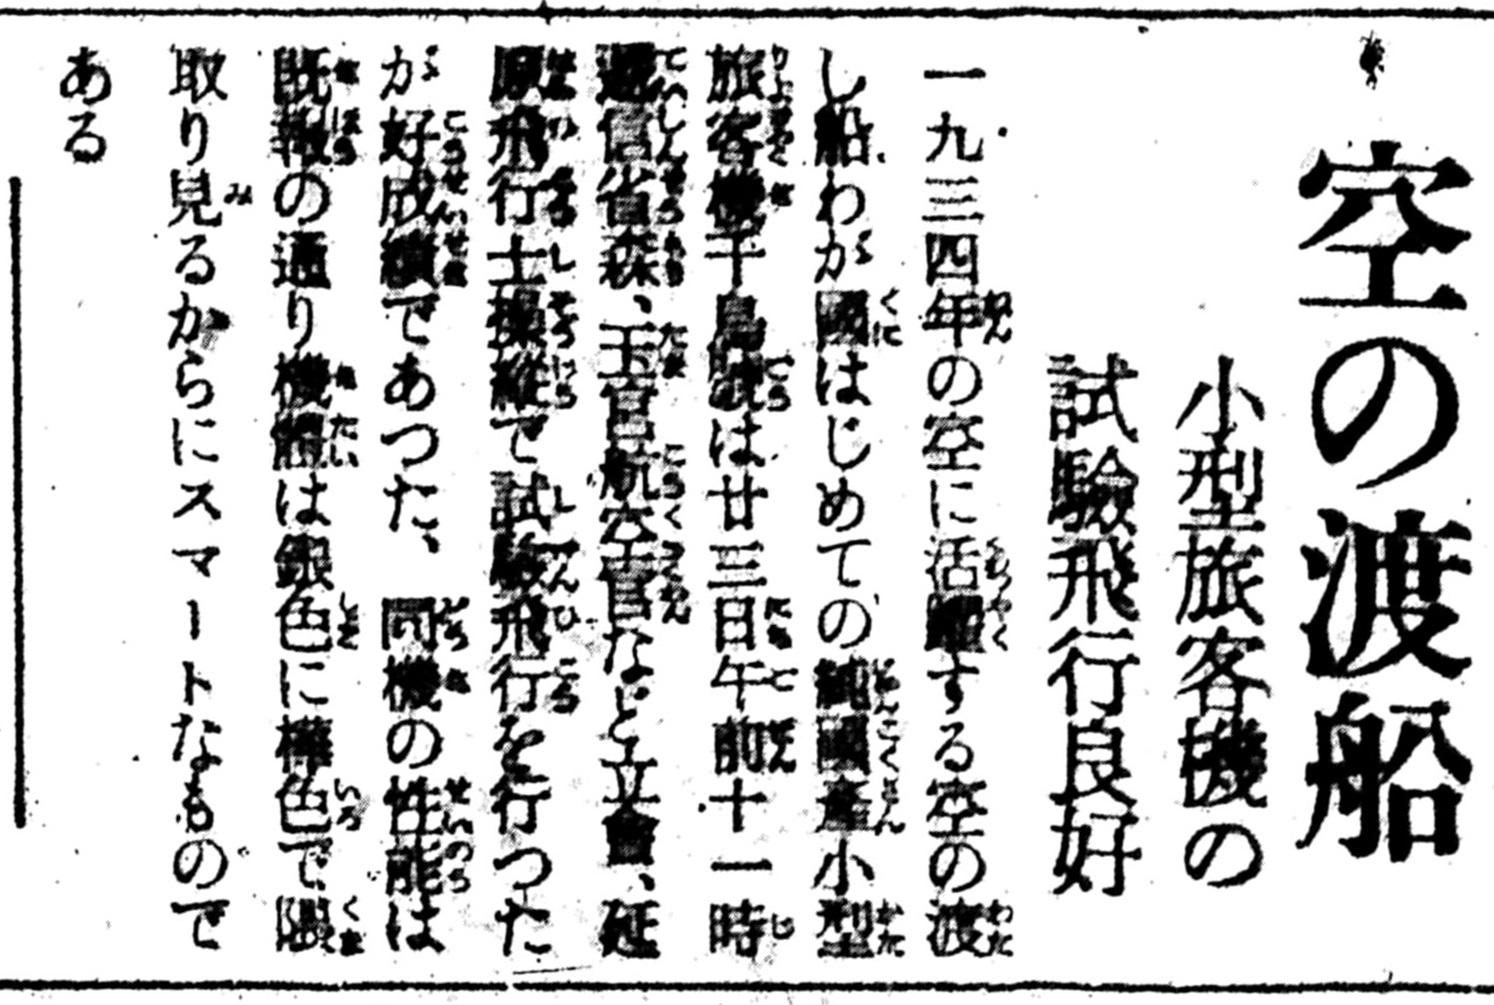 空の渡船
小型旅客機の
試驗飛行良好
一九三四年の空に活躍する空の渡
し船わが國はじめての純國産小型
旅客機千鳥號は廿三日午前十一時
遞信省森、玉官航空官など立會、延
原飛行士操縱で試驗飛行を行つた
が好成績であつた、同機の性能は
既報の通り機體は銀色に樺色で隈
取り見るからにスマートなもので
ある